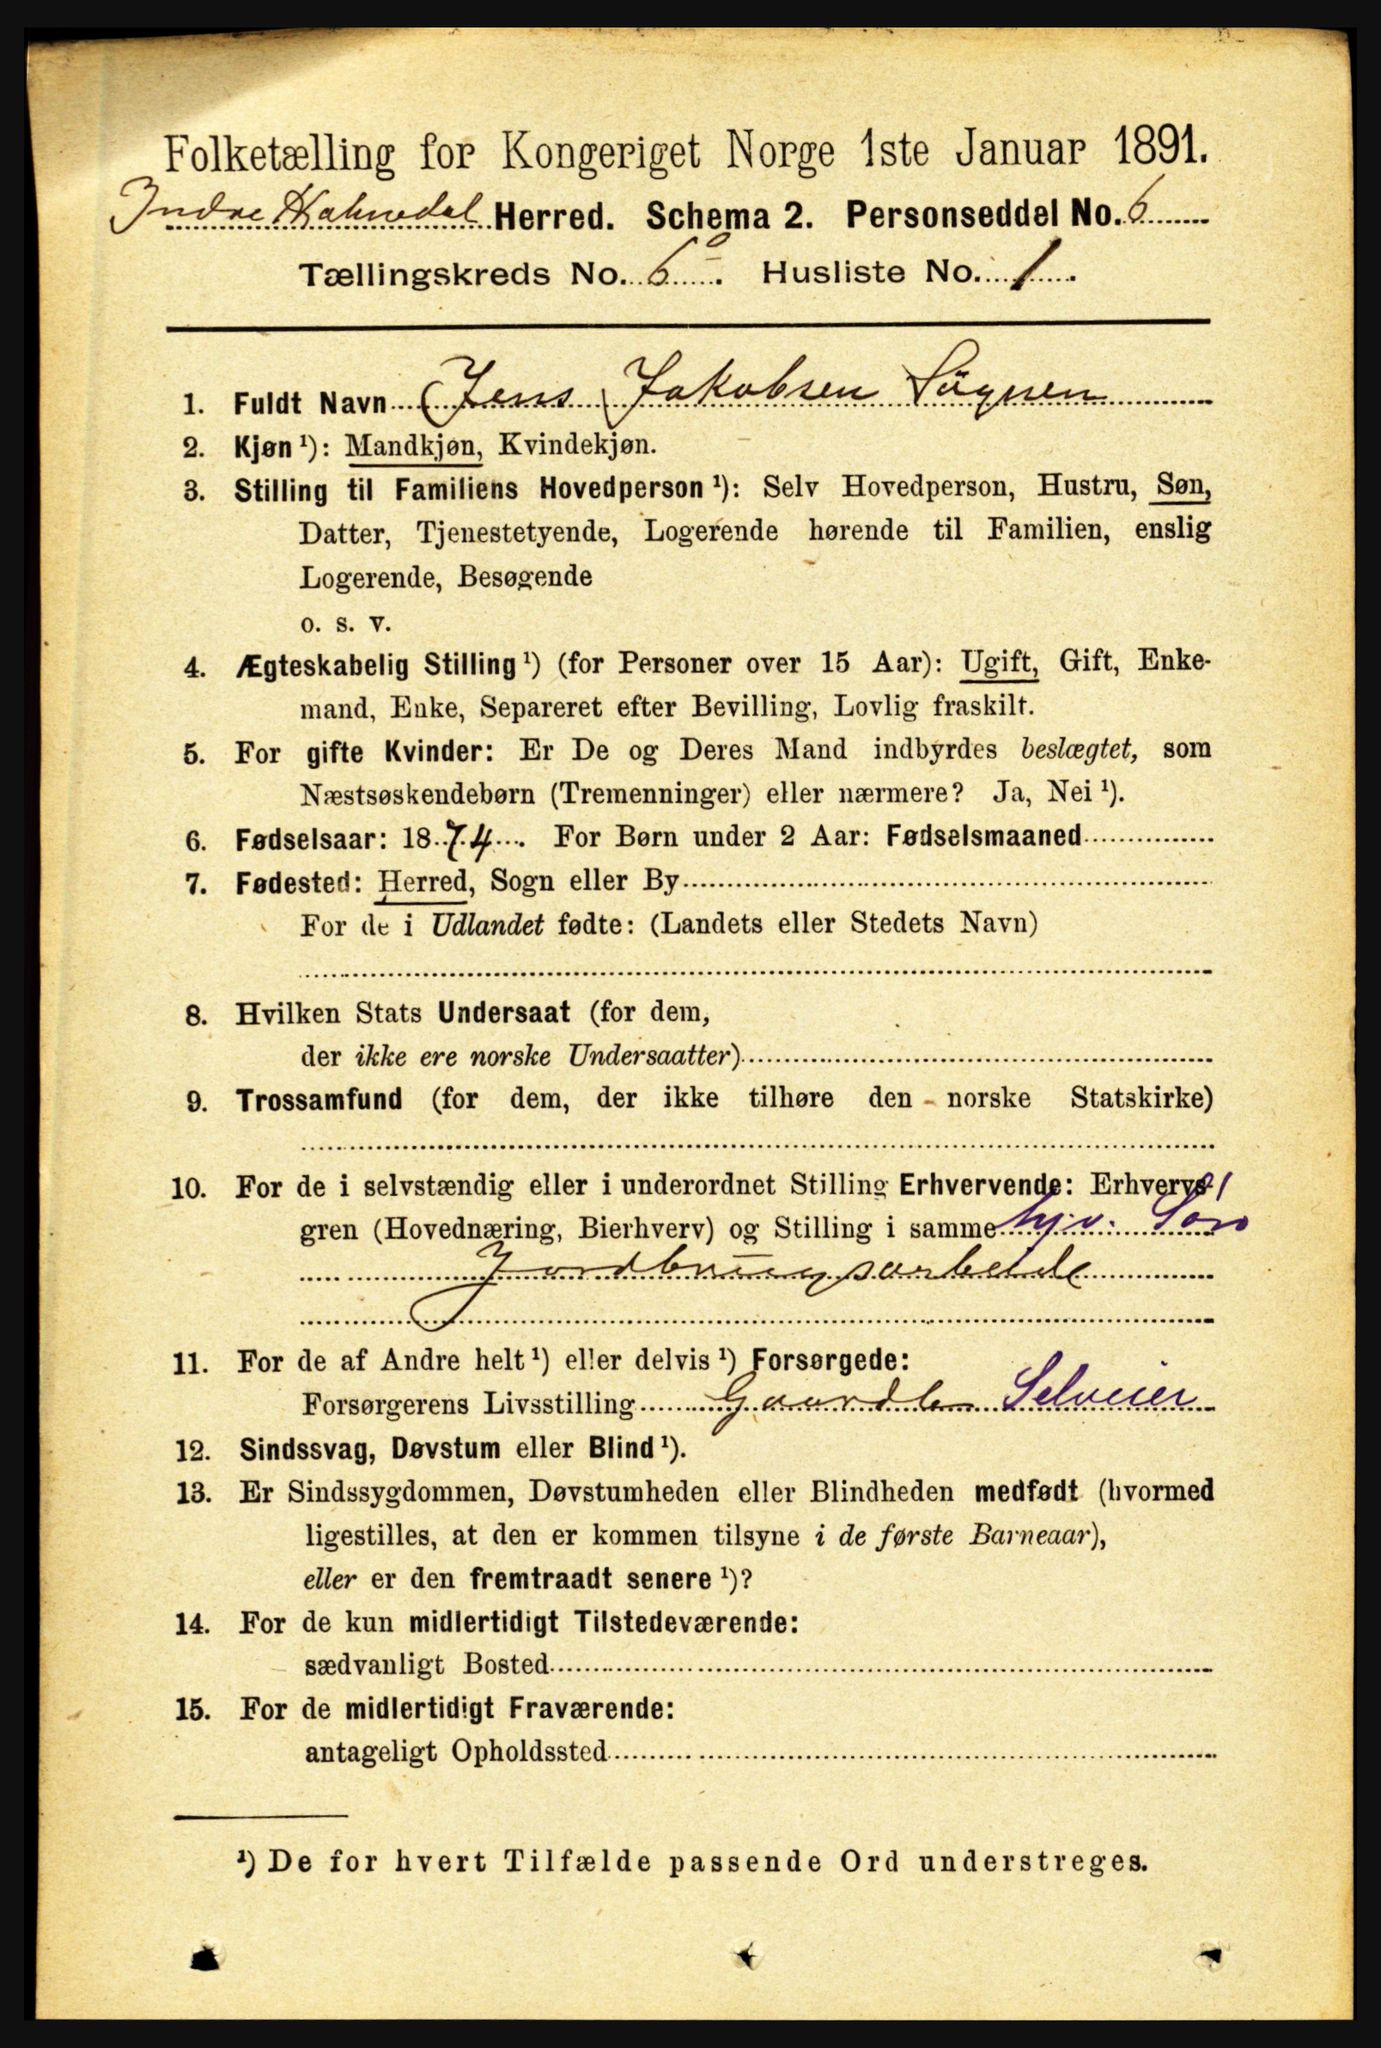 Folketælling for Kongeriget Norge 1ste Januar 1891.
Indre Holmedal Herred. Schema 2. Personseddel No. 6
Tællingskreds No. 6 Husliste No. 1.
1. Fuldt Navn (Jens) Jakobsen Sögnen
2. Kjøn ¹): Mandkjøn, Kvindekjøn.
3. Stilling til Familiens Hovedperson ¹): Selv Hovedperson, Hustru, Søn,
Datter, Tjenestetyende, Logerende hørende til Familien, enslig
Logerende, Besøgende
o. s. v.
4. Ægteskabelig Stilling ¹) (for Personer over 15 Aar): Ugift, Gift, Enke-
mand, Enke, Separeret efter Bevilling, Lovlig fraskilt.
5. For gifte Kvinder: Er De og Deres Mand indbyrdes beslægtet, som
Næstsøskendebørn (Tremenninger) eller nærmere? Ja, Nei ¹).
6. Fødselsaar: 1874. For Børn under 2 Aar: Fødselsmaaned
7. Fødested: Herred, Sogn eller By
For de i Udlandet fødte: (Landets eller Stedets Navn)
8. Hvilken Stats Undersaat (for dem,
der ikke ere norske Undersaatter)
9. Trossamfund (for dem, der ikke tilhøre den norske Statskirke)
10. For de i selvstændig eller i underordnet Stilling Erhvervende: Erhvervs-
gren (Hovednæring, Bierhverv) og Stilling i samme hjv. Søn
Jordbrugsarbeide
11. For de af Andre helt ¹) eller delvis ¹) Forsørgede:
Forsørgerens Livsstilling Gaardbr Selveier
12. Sindssvag, Døvstum eller Blind ¹).
13. Er Sindssygdommen, Døvstumheden eller Blindheden medfødt (hvormed
ligestilles, at den er kommen tilsyne i de første Barneaar),
eller er den fremtraadt senere ¹)?
14. For de kun midlertidigt Tilstedeværende:
sædvanligt Bosted
15. For de midlertidigt Fraværende:
antageligt Opholdssted
¹) De for hvert Tilfælde passende Ord understreges.